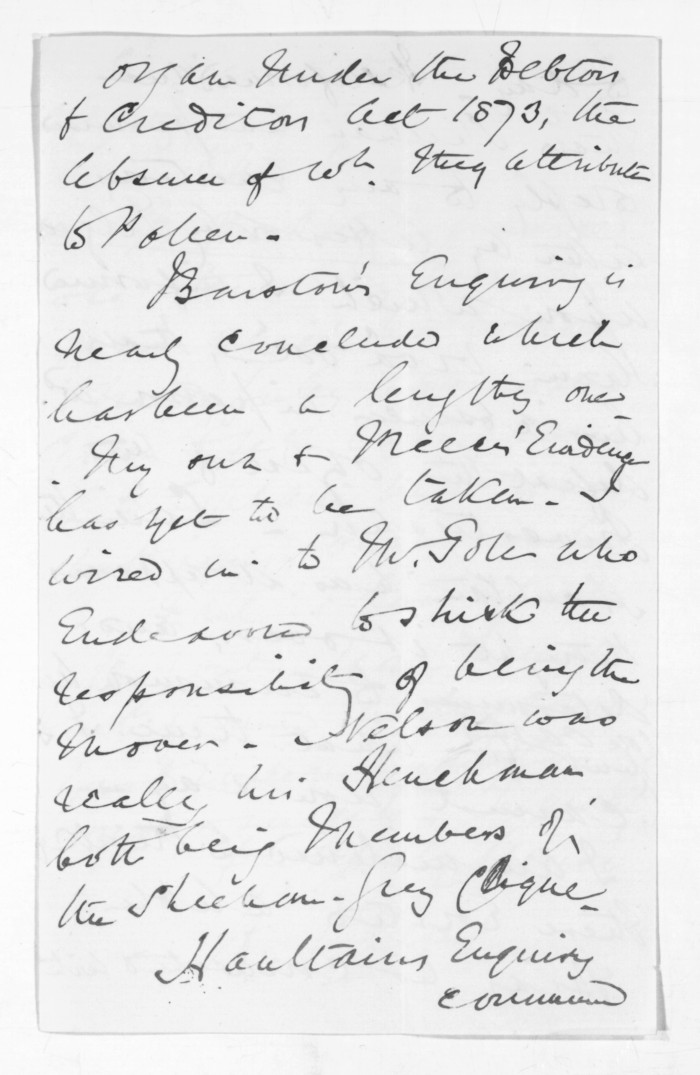 organ under the Debtors
& Creditors Act 1873, the
absence of wh. they attribute
to
Barstow's Enquiry is
nearly concluded which
has been a lengthy one
My own & Evidence
has yet to be taken - I
wired in to Mr. who
Endeavored to shirk the
responsibility of being the
Mover - Nelson was
really his Henchman
both being Members of
the Sheehan - Grey Clique -
Haultains Enquiry